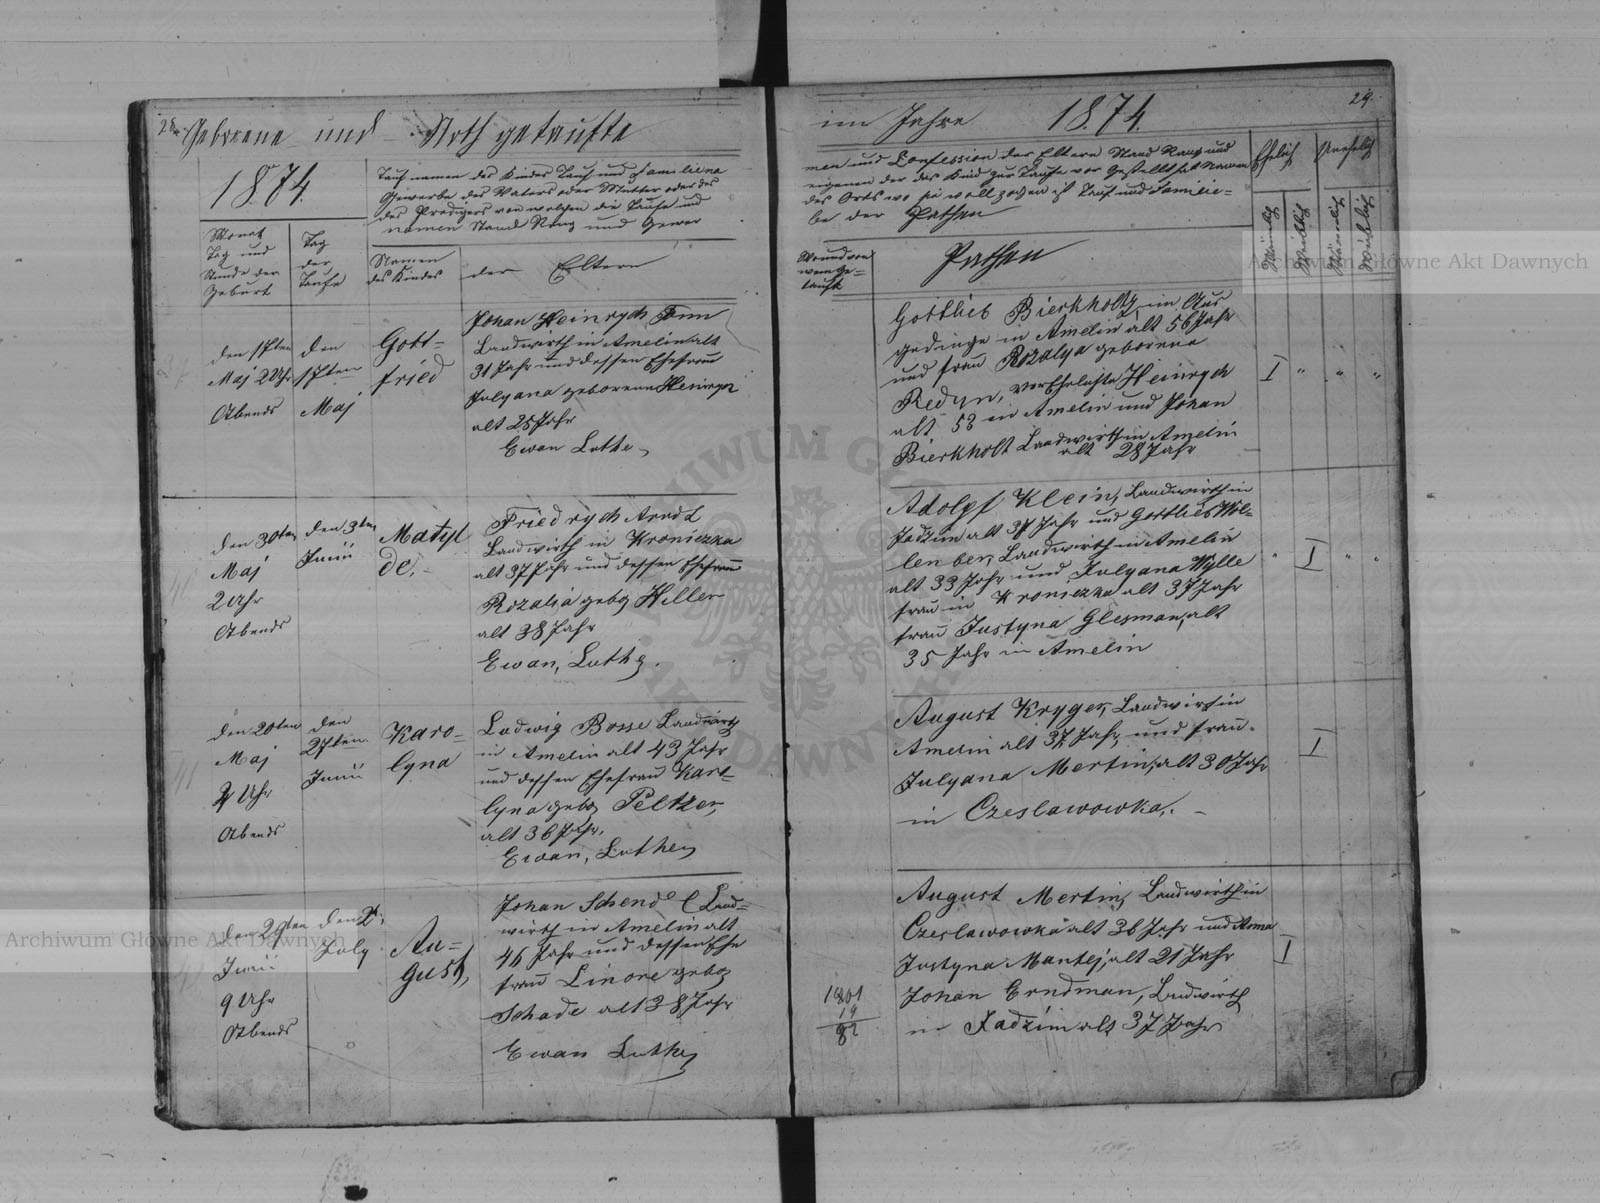 28.
Geborene und Noth getaufte
1874.
Tauf namen des Kindes Tauf und Familiena
Gewerbe des Vaters oder Mutter oder des
des Predigers von welchen die Taufe und
namen Stand Rang und Gewer
Monat
Tag und
Stunde der
Geburt
Tag
der
Taufe
Namen
des Kindes
der Eltern
den
Maj 2 Uhr
Abends
den
Maj
Gott=
fried
Johan Heinrych
Landwirth in Amelin alt
31 Jahr und dessen Ehefrau
Julyana geborene
alt 25 Jahr
Ewan Luthe
den 30ten
Maj
2 Uhr
Abends
den 3ten
Junii
Matyl
de,
Friedrych Arndt
Landwirth in Kroniczka
alt 37 Jahr und dessen Ehefrau
Rozalia geb Hiller
alt 38 Jahr
Ewan, Luthe
den 20ten
Maj
Uhr
Abends
den
27ten
Junii
Karo=
lyna
Ludwig Bosse Landwirth
in Amelin alt 43 Jahr
und dessen Ehefrau Karo=
lyna geb Peltzer,
alt 36 Jahr.
Ewan, Luthe
den 29ten
Junii
9 Uhr
Abends
den
July
Au=
gust,
Johan Schendel Land=
wirth in Amelin alt
46 Jahr und dessen Ehe
frau Linore geb
Schade alt 38 Jahr
Ewan Luthe
29.
im Jahre 1874.
men und Confession der Eltern Stand Rang und
eigenen der das Kind zur Taufe vor Gestellt hat Namen
des Orts wo sie vollzogen ist Tauf und Familie=
be der Pathen
Ehelich
Unehelich
Männlich
Weiblich
Männlich
Weiblich
Wo und von
wem ge=
tauft
Pathen
Gottlieb Bierkholtz, im Aus
gedinge in Amelin alt 56 Jahr
und frau Rozalya geborene
Redyn, verEhelichte Heinrych
alt 53 in Amelin und Johan
Bierkholt Landwirth in Amelin
alt 28 Jahr
I " " "
Adolpf Klein, Landwirth in
Jadzim alt 37 Jahr und Gottlieb Wol=
lenber, Landwirth in Amelin
alt 33 Jahr und Julyana Wylle
frau in Kroniczka alt 37 Jahr
frau Justyna Glesman, alt
35 Jahr in Amelin
" I " "
August Kryger, Landwirth in
Amelin alt 37 Jahr, und frau
Julyana Mertin, alt 30 Jahr
in Czeslawowka.
I
August Mertin, Landwirth in
Czeslawowka alt 36 Jahr und Anna
Justyna Mantej, alt 21 Jahr
Johan Erndman, Landwirth
in Jadzim alt 37 Jahr
I
1801
19
82
Archiwum Główne Akt Dawnych
Archiwum Główne Akt Dawnych